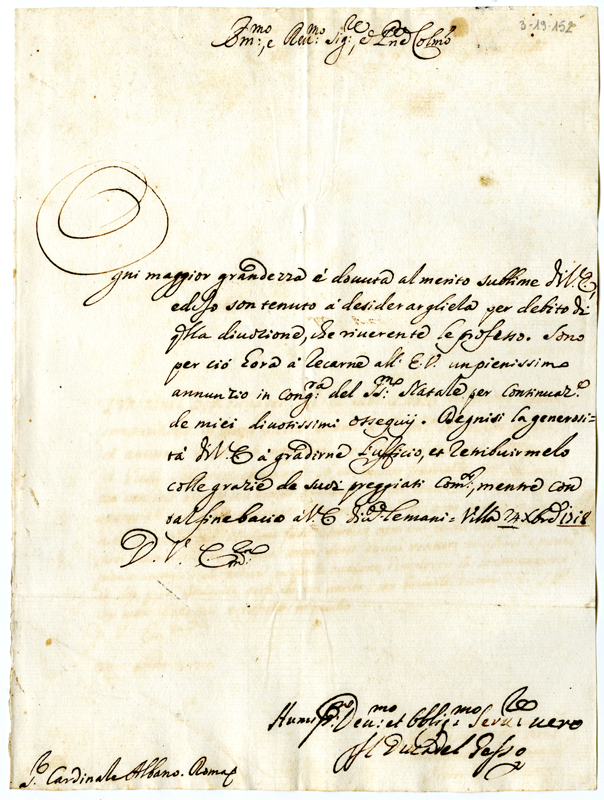 3-19-152
Em:mo, e Reu:mo Sig:re, e Pne Colmo
Ogni maggior grandezza é douuta al merito sublime di V.E.
ed Jo son tenuto á desiderargliela per debito di
qlla diuozione, che riuerente le professo. Sono
per ció hora á recarne all' E.V. un pienissimo
annunzio in cong:ra del SS:mo Natale per continuaz:e
de miei diuotissimi ossequij. Degnisi la generosi=
tá di V.E. á gradirne l'uffizio, et retribuirmelo
colle grazie de suoi preggiati Com:di, mentre con
tal fine bacio á V.E. diuot:te le mani = Villa 24 Xbre 1718
D. V. Em:za
Humiss:o Deu:mo et Oblig:mo Seru:re uero
Il Duca del Gesso
S.r Cardinale Albano. Roma